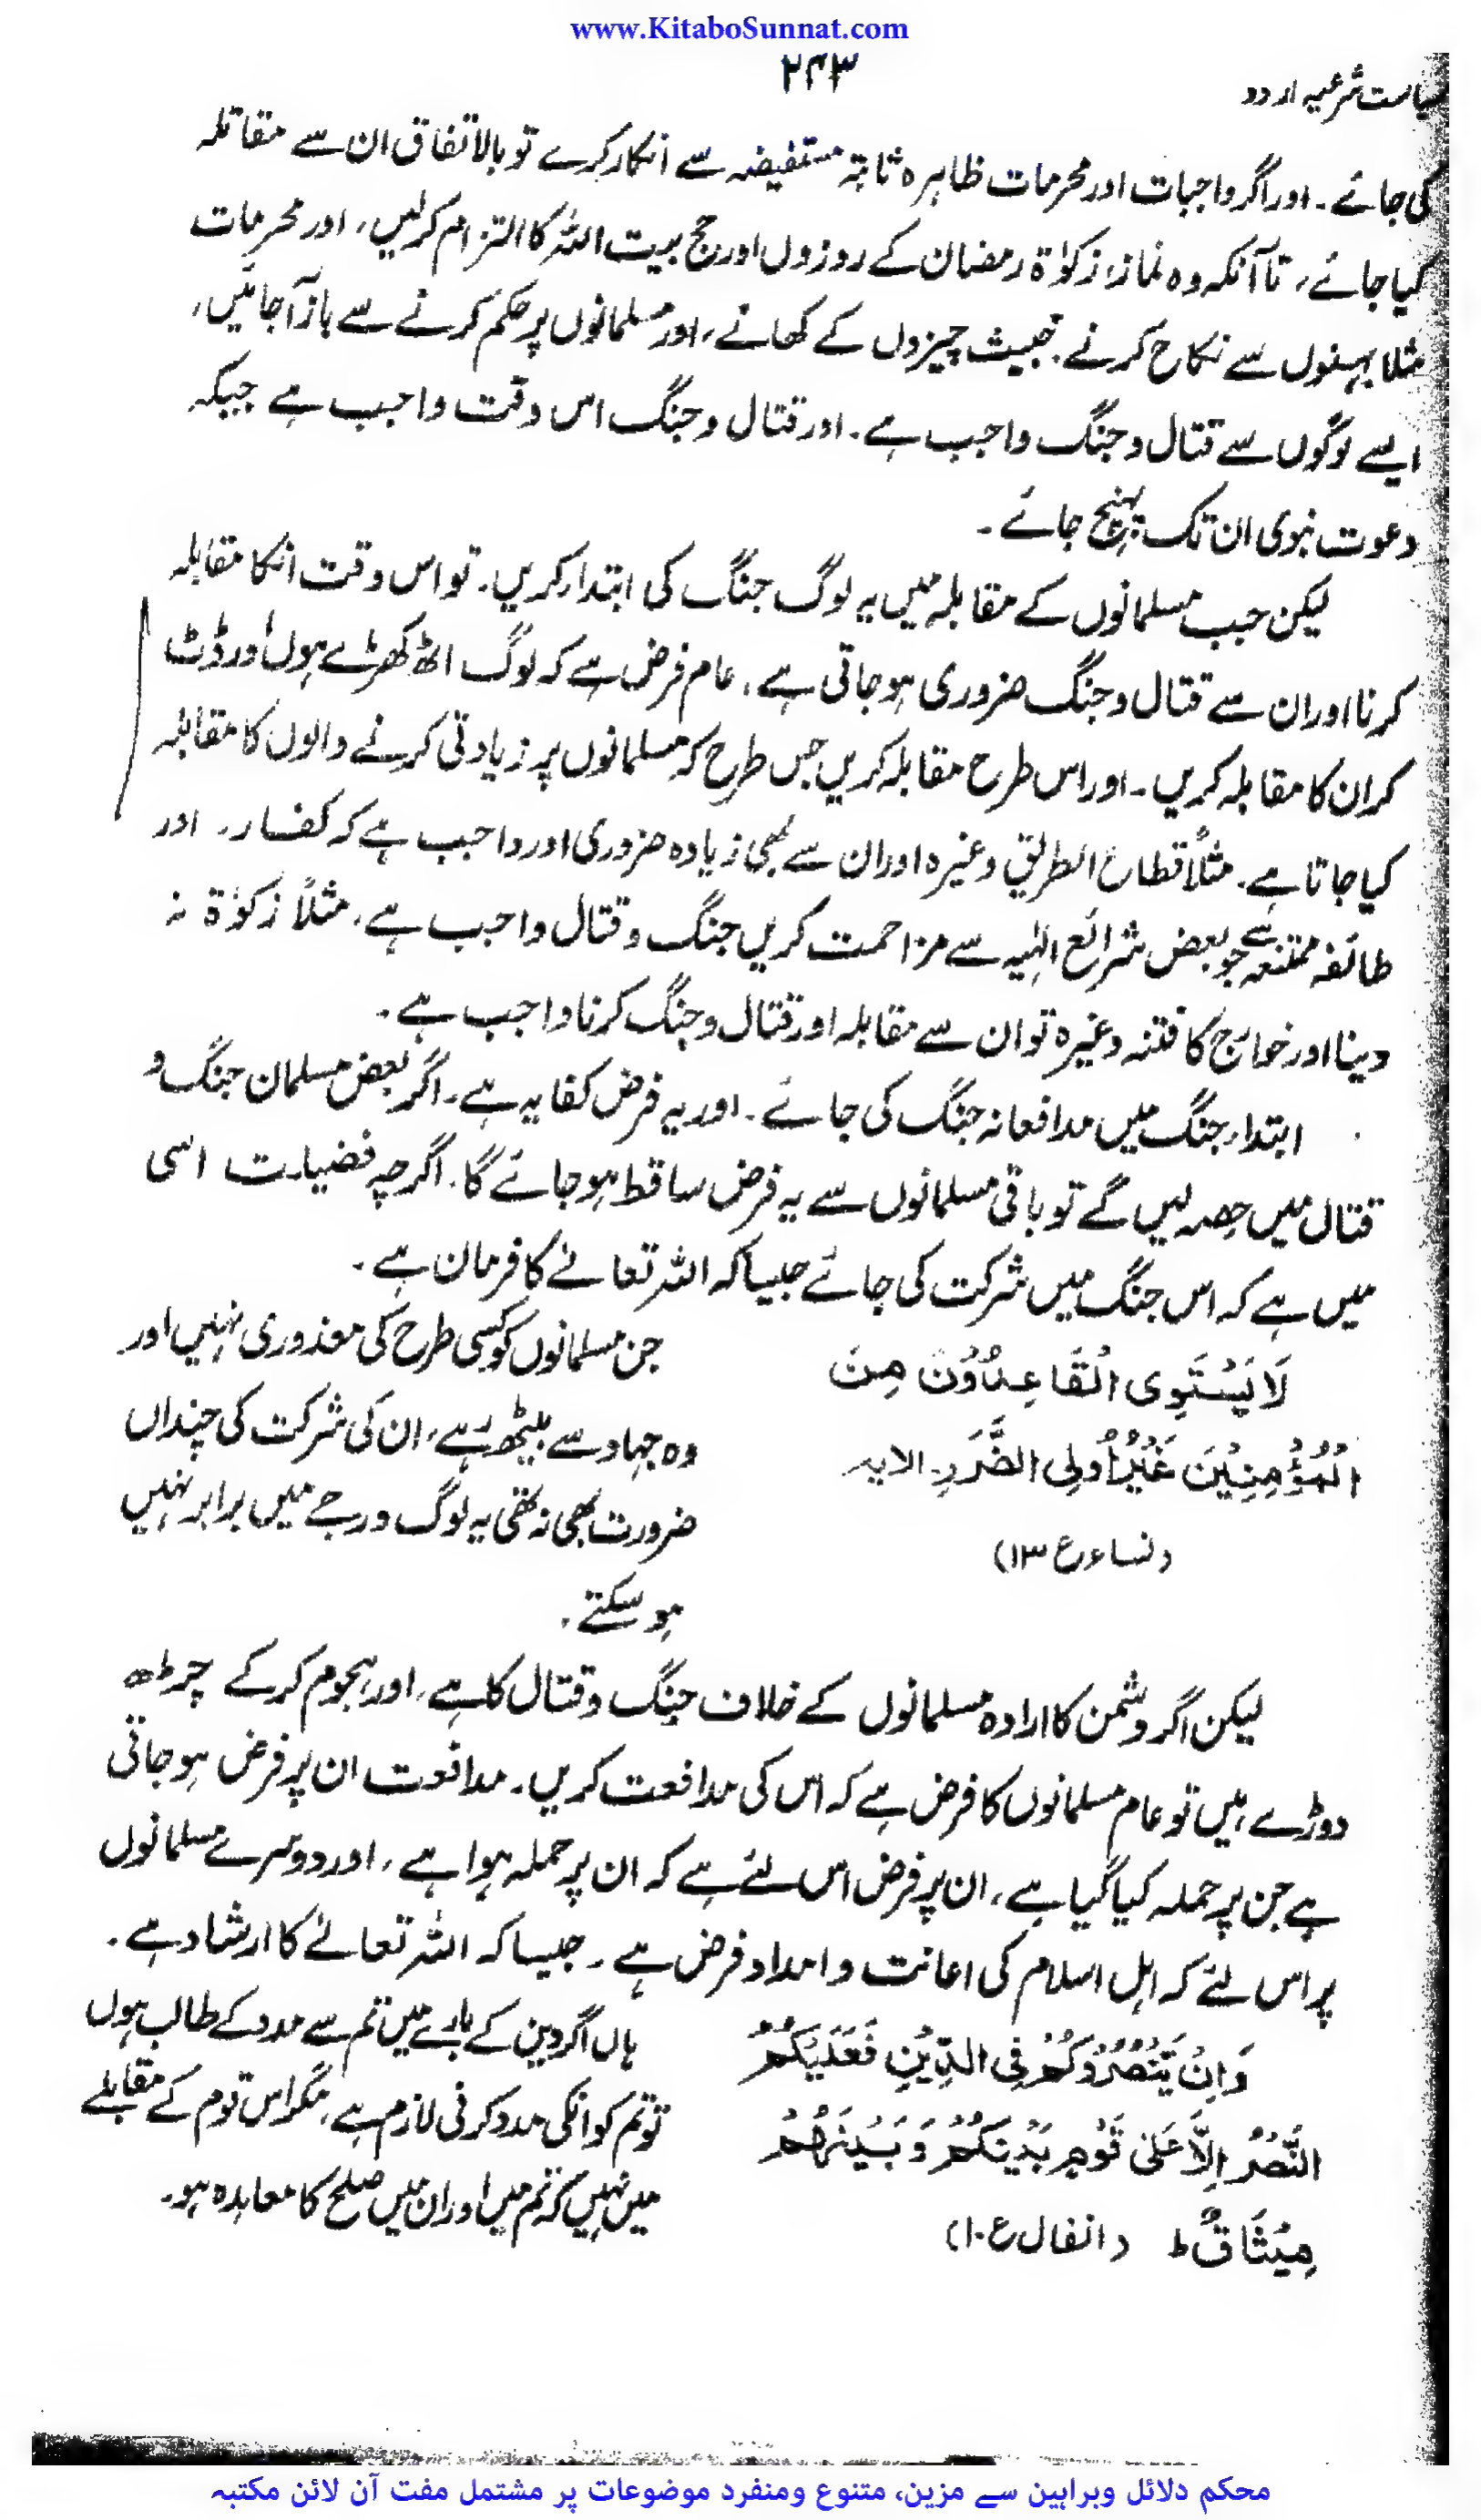 www.KitaboSunnat.com
سیاست شرعیہ اردو
۲۴۳
کی جائے۔ اور اگر واجبات اور محرمات ظاہرہ ثابتہ مستفیضہ سے انکار کرے تو بالاتفاق ان سے مقاتلہ
کیا جائے، تا آنکہ وہ نماز، زکوٰۃ رمضان کے روزوں اور حج بیت اللہ کا التزام کرلیں، اور محرمات
مثلا بہنوں سے نکاح کرنے۔ خبیث چیزوں کے کھانے، اور مسلمانوں پر حکم کرنے سے باز آجائیں،
ایسے لوگوں سے قتال و جنگ واجب ہے۔ اور قتال و جنگ اس وقت واجب ہے جبکہ
دعوت نبوی ان تک پہنچ جائے۔
لیکن جب مسلمانوں کے مقابلہ میں یہ لوگ جنگ کی ابتداء کریں۔ تو اس وقت انکا مقابلہ
کرنا اور ان سے قتال و جنگ ضروری ہوجاتی ہے۔ عام فرض ہے کہ لوگ اٹھ کھڑے ہوں اور ڈٹ
کر ان کا مقابلہ کریں۔ اور اس طرح مقابلہ کریں جس طرح کہ مسلمانوں پر زیادتی کرنے والوں کا مقابلہ
کیا جاتا ہے۔ مثلاً قطاع الطریق وغیرہ اور ان سے بھی زیادہ ضروری اور واجب ہے کہ کفار، اور
طائفہ ممتنعہ سے جو بعض شرائع الٰہیہ سے مزاحمت کریں جنگ و قتال واجب ہے، مثلاً زکوٰۃ نہ
دینا اور خوارج کا فتنہ وغیرہ تو ان سے مقابلہ اور قتال و جنگ کرنا واجب ہے۔
ابتداء جنگ میں مدافعانہ جنگ کی جائے۔ اور یہ فرض کفایہ ہے۔ اگر بعض مسلمان جنگ و
قتال میں حصہ لیں گے تو باقی مسلمانوں سے یہ فرض ساقط ہوجائے گا۔ اگرچہ فضیلت اسی
میں ہے کہ اس جنگ میں شرکت کی جائے جیساکہ اللہ تعالےٰ کا فرمان ہے۔
لَا یَسْتَوِی الْقَاعِدُوْنَ مِنَ
الْمُؤْمِنِیْنَ غَیْرُ اُولِی الضَّرَرِ۔ الایہ
(نساء ع ۱۳)
جن مسلمانوں کو کسی طرح کی معذوری نہیں اور
وہ جہاد سے بیٹھ رہے، ان کی شرکت کی چنداں
ضرورت بھی نہ تھی یہ لوگ درجے میں برابر نہیں
ہو سکتے۔
لیکن اگر دشمن کا ارادہ مسلمانوں کے خلاف جنگ و قتال کا ہے، اور ہجوم کرکے چڑھ
دوڑے ہیں تو عام مسلمانوں کا فرض ہے کہ اس کی مدافعت کریں۔ مدافعت ان پر فرض ہوجاتی
ہے جن پر حملہ کیا گیا ہے، ان پر فرض اس لئے ہے کہ ان پر حملہ ہوا ہے، اور دوسرے مسلمانوں
پر اس لئے کہ اہل اسلام کی اعانت و امداد فرض ہے۔ جیسا کہ اللہ تعالےٰ کا ارشاد ہے۔
وَاِنْ یَّنْصُرُوْکُمْ فِی الدِّیْنِ فَعَلَیْکُمُ
النَّصْرُ اِلَّا عَلیٰ قَوْمٍ بَیْنَکُمْ وَبَیْنَھُمْ
مِیْثَاقٌ ط (انفال ع ۱۰)
ہاں اگر دین کے بارے میں تم سے مدد کے طالب ہوں
تو تم کو انکی مدد کرنی لازم ہے، مگر اس قوم کے مقابلے
میں نہیں کہ تم میں اور ان میں صلح کا معاہدہ ہو۔
محکم دلائل وبراہین سے مزین، متنوع ومنفرد موضوعات پر مشتمل مفت آن لائن مکتبہ